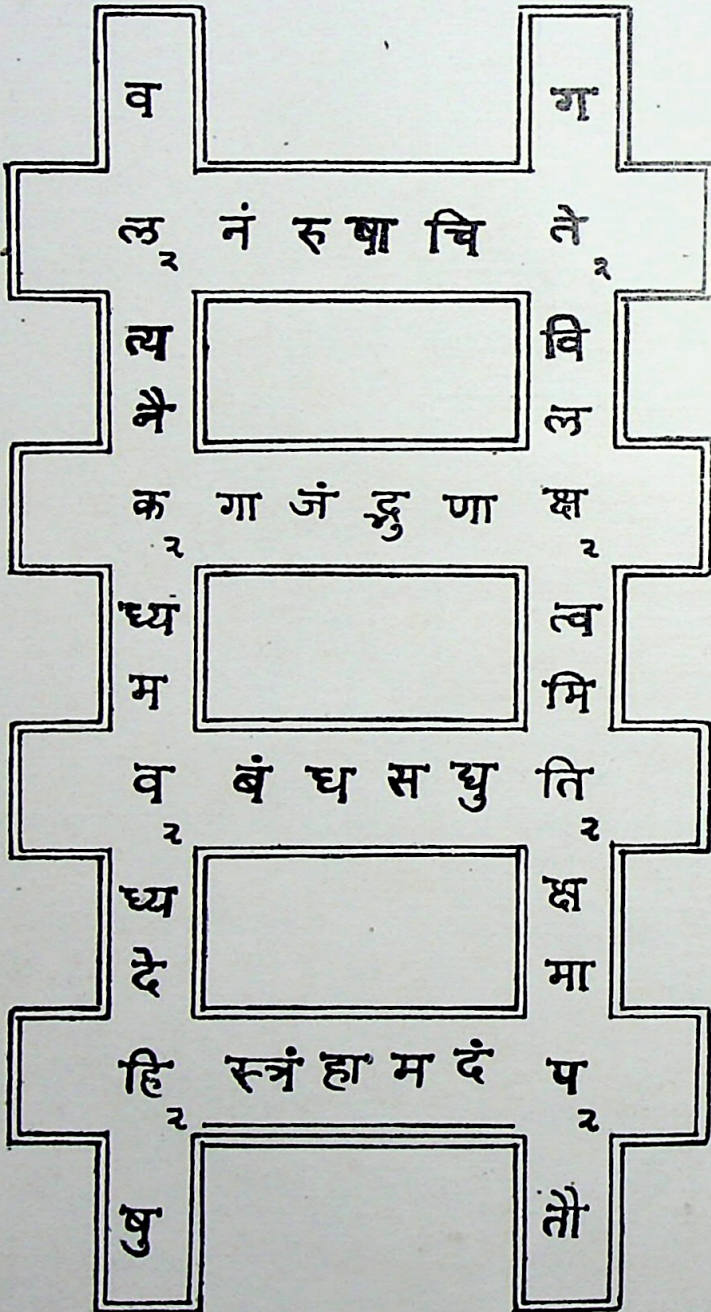 व ग
ल२ नं रु षा चि ते२
त्य वि
नै ल
क२ गा जं द्गु णा क्ष२
ध्यं त्व
म मि
व२ बं ध स धु ति२
ध्य क्ष
दे मा
हि२ स्त्रं हा म दं प२
षु तौ